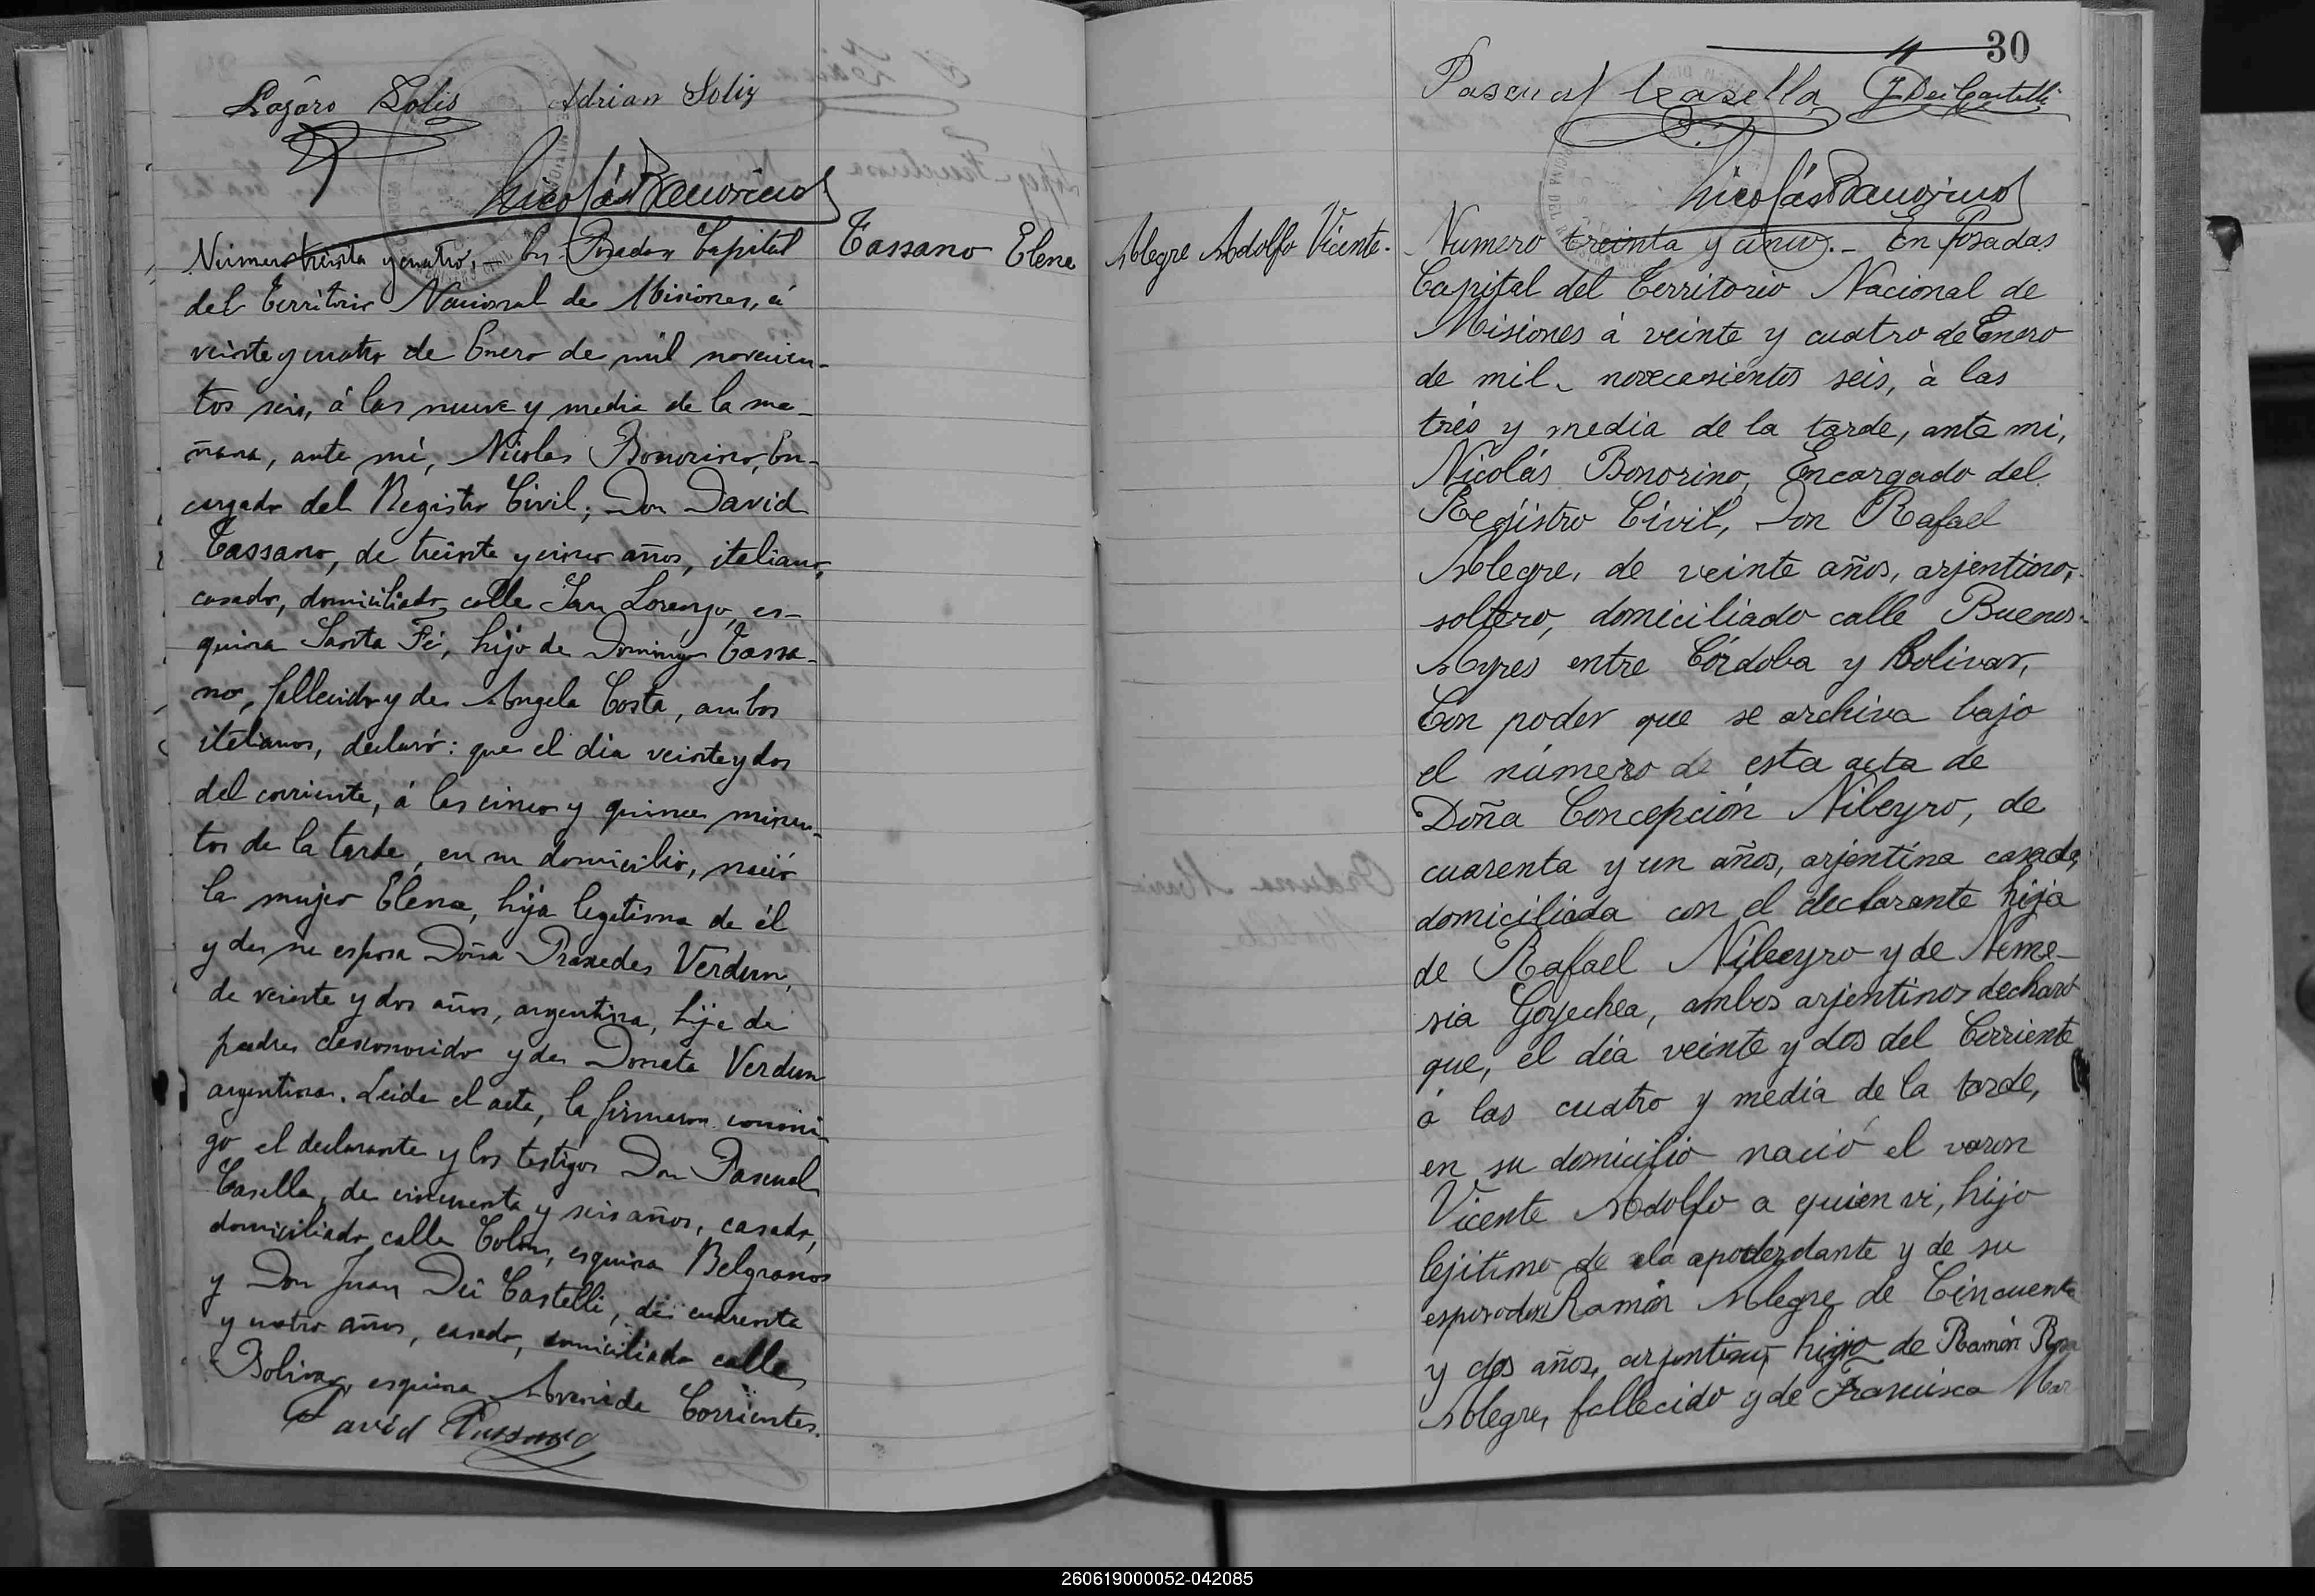 Lázaro Solis Adrian Soliz
Nicolás Bonorino
Número treinta y cuatro. — En Posadas Capital
Cassano Elena
del Territorio Nacional de Misiones, á
veinte y cuatro de Enero de mil novecien-
tos seis, á las nueve y media de la ma-
ñana, ante mí, Nicolas Bonorino, En-
cargado del Registro Civil; Don David
Cassano, de treinta y cinco años, italiano,
casado, domiciliado calle San Lorenzo, es-
quina Santa Fé, hijo de Domingo Cassa-
no, fallecido y de Angela Costa, ambos
italianos, declaró: que el dia veinte y dos
del corriente, á las cinco y quince minu-
tos de la tarde, en su domicilio, nació
la mujer Elena, hija legitima de él
y de su esposa Doña Praxedes Verdun,
de veinte y dos años, argentina, hija de
padre desconocido y de Donata Verdun
argentina. Leida el acta, la firmaron conmi-
go el declarante y los testigos Don Pascual
Casella, de cincuenta y seis años, casado,
domiciliado calle Colon, esquina Belgrano
y Don Juan Dei Castelli, de cuarenta
y cuatro años, casado, domiciliado calle
Bolivar, esquina Avenida Corrientes.
David Cassano
30
Pascual Casella J Dei Castelli
Nicolás Bonorino
Alegre Adolfo Vicente.
Numero treinta y cinco. — En Posadas
Capital del Territorio Nacional de
Misiones á veinte y cuatro de Enero
de mil novecesientos seis, à las
trés y media de la tarde, ante mi,
Nicolás Bonorino, Encargado del
Registro Civil, Don Rafael
Alegre, de veinte años, arjentino,
soltero, domiciliado calle Buenos-
Ayres entre Córdoba y Bolivar,
Con poder que se archiva bajo
el número de esta acta de
Doña Concepción Nibeyro, de
cuarenta y un años, arjentina casada,
domiciliada con el declarante hija
de Rafael Nibeyro y de Neme-
sia Goyechea, ambos arjentinos declaró
que, el día veinte y dos del Corriente
á las cuatro y media de la tarde,
en su domicilio nació el varon
Vicente Adolfo a quien vi, hijo
lejitimo de la apoderdante y de su
esposo don Ramón Alegre de Cincuenta
y dos años, arjentino, hijo de Ramón
Alegre, fallecido y de Francisca
260619000052-042085